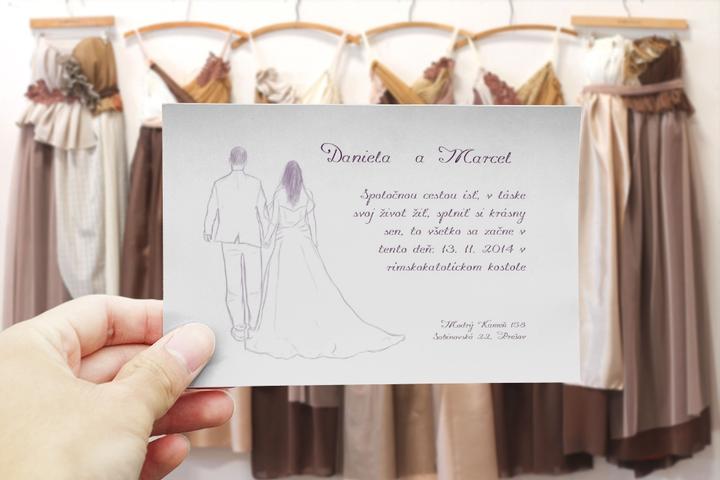 Daniela a Marcel
Spoločnou cestou ísť, v láske
svoj život žiť, splniť si krásny
sen, to všetko sa začne v
tento deň: 13. 11. 2014 v
rímskokatolíckom kostole
Modrý Kameň 138
Sabinovská 22, Prešov